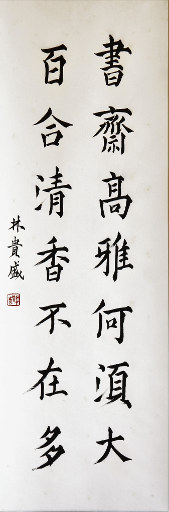 書齋高雅何須大
百合清香不在多
林貴盛